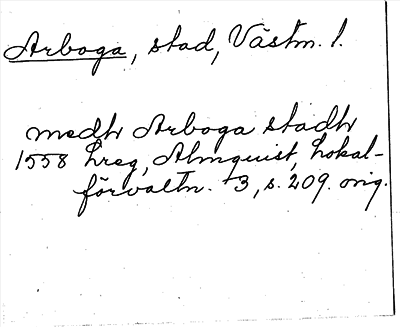 Arboga, stad, Västm. l.
medh Arboga stadh
1558 hreg, Almquist, Lokal-
förvaltn. 3, s. 209. orig.